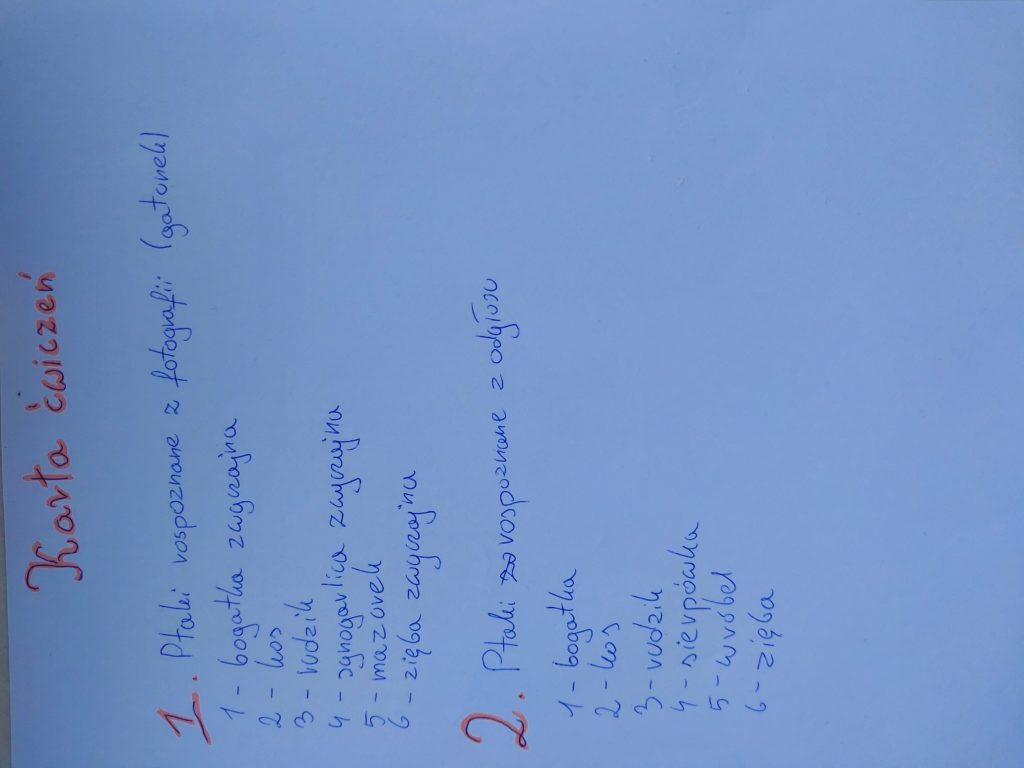 Karta ćwiczeń
1. Ptaki rospoznane z fotografii (gatunek)
1 - bogatka zwyczajna
2 - kos
3 - rudzik
4 - synogarlica zwyczajna
5 - mazurek
6 - zięba zwyczajna
2. Ptaki rospoznane z odgłosu
1 - bogatka
2 - kos
3 - rudzik
4 - sierpówka
5 - wróbel
6 - zięba